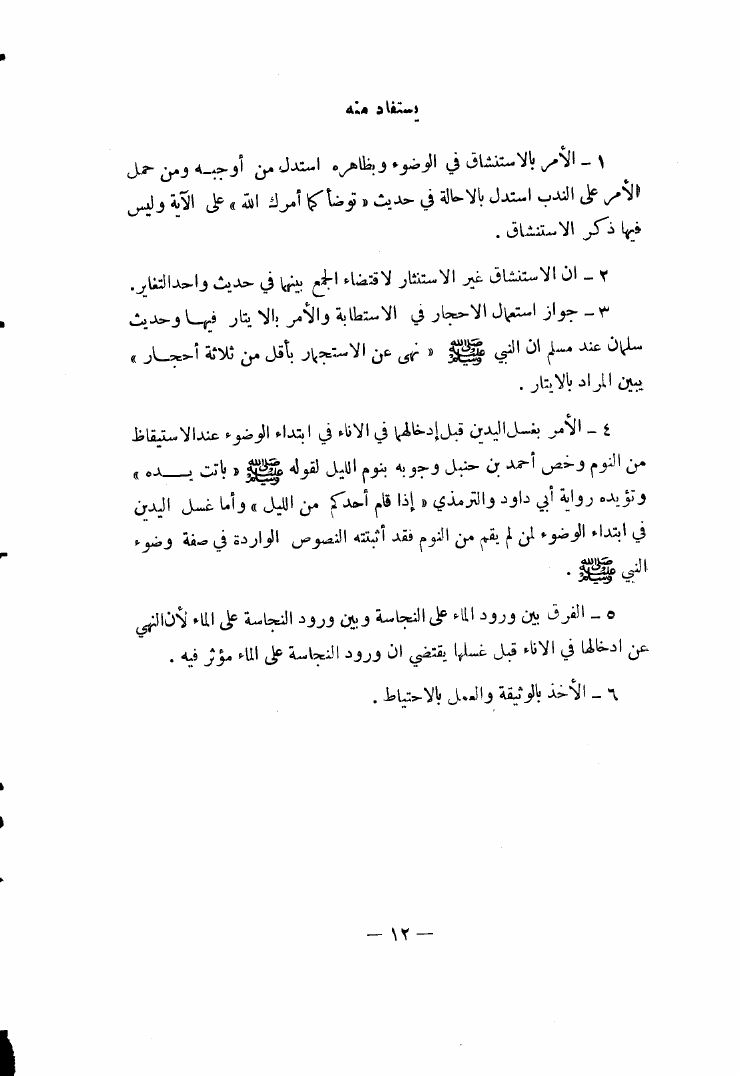 يستفاد منه
١ – الأمر بالاستنشاق في الوضوء وبظاهره استدل من أوجبـه ومن حمل
الأمر على الندب استدل بالاحالة في حديث « توضأ كما أمرك الله » على الآية وليس
فيها ذكر الاستنشاق .
٢ – ان الاستنشاق غير الاستنثار لاقتضاء الجمع بينها في حديث واحد التغاير.
٣ – جواز استعمال الاحجار في الاستطابة والأمر بالايتار فيهـا وحديث
سلمان عند مسلم ان النبي ﷺ « نهى عن الاستجمار بأقل من ثلاثة أحجـار »
يبين المراد بالايتار .
٤ – الأمر بغسل اليدين قبل إدخالهما في الاناء في ابتداء الوضوء عند الاستيقاظ
من النوم وخص أحمد بن حنبل وجوبه بنوم الليل لقوله ﷺ « باتت يـــده »
وتؤيده رواية أبي داود والترمذي « إذا قام أحدكم من الليل » وأما غسل اليدين
في ابتداء الوضوء لمن لم يقم من النوم فقد أثبتته النصوص الواردة في صفة وضوء
النبي ﷺ .
٥ – الفرق بين ورود الماء على النجاسة وبين ورود النجاسة على الماء لأن النهي
عن ادخالها في الاناء قبل غسلها يقتضي ان ورود النجاسة على الماء مؤثر فيه .
٦ – الأخذ بالوثيقة والعمل بالاحتياط .
– ١٢ –